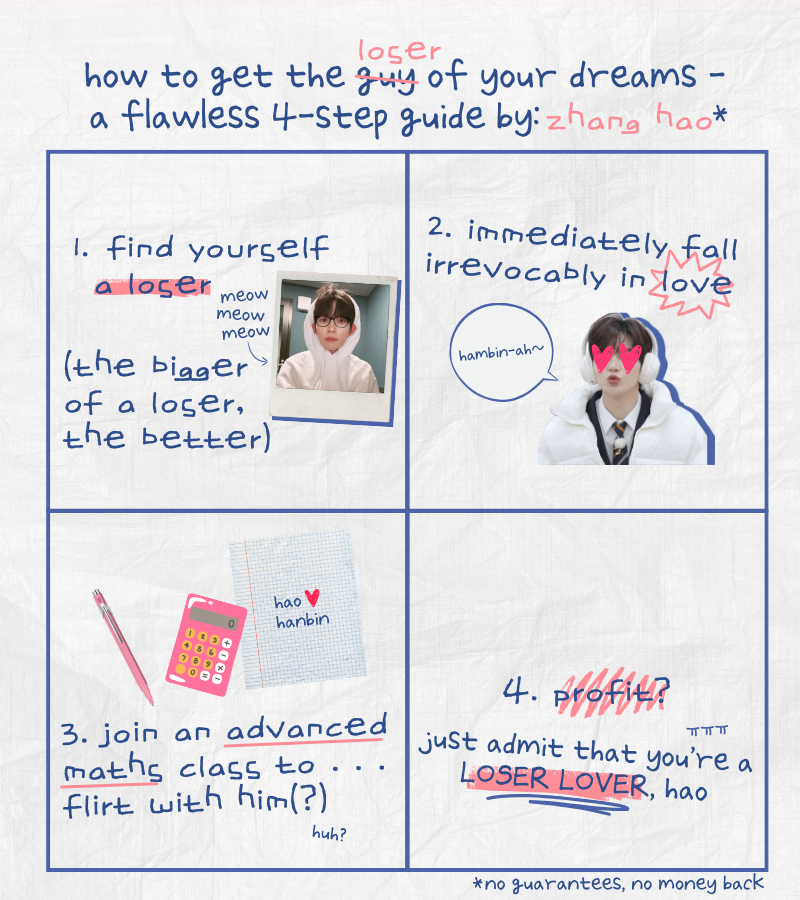 loser
how to get the guy of your dreams -
a flawless 4-step guide by: zhang hao*
1. find yourself
a loser
meow
meow
meow
(the bigger
of a loser,
the better)
2. immediately fall
irrevocably in love
hambin-ah~
hao
hanbin
0
1 2 3 +
4 5 6 -
7 8 9 ×
0 = -
3. join an advanced
maths class to . . .
flirt with him(?)
huh?
4. profit?
ㅠㅠㅠ
just admit that you're a
LOSER LOVER, hao
*no guarantees, no money back